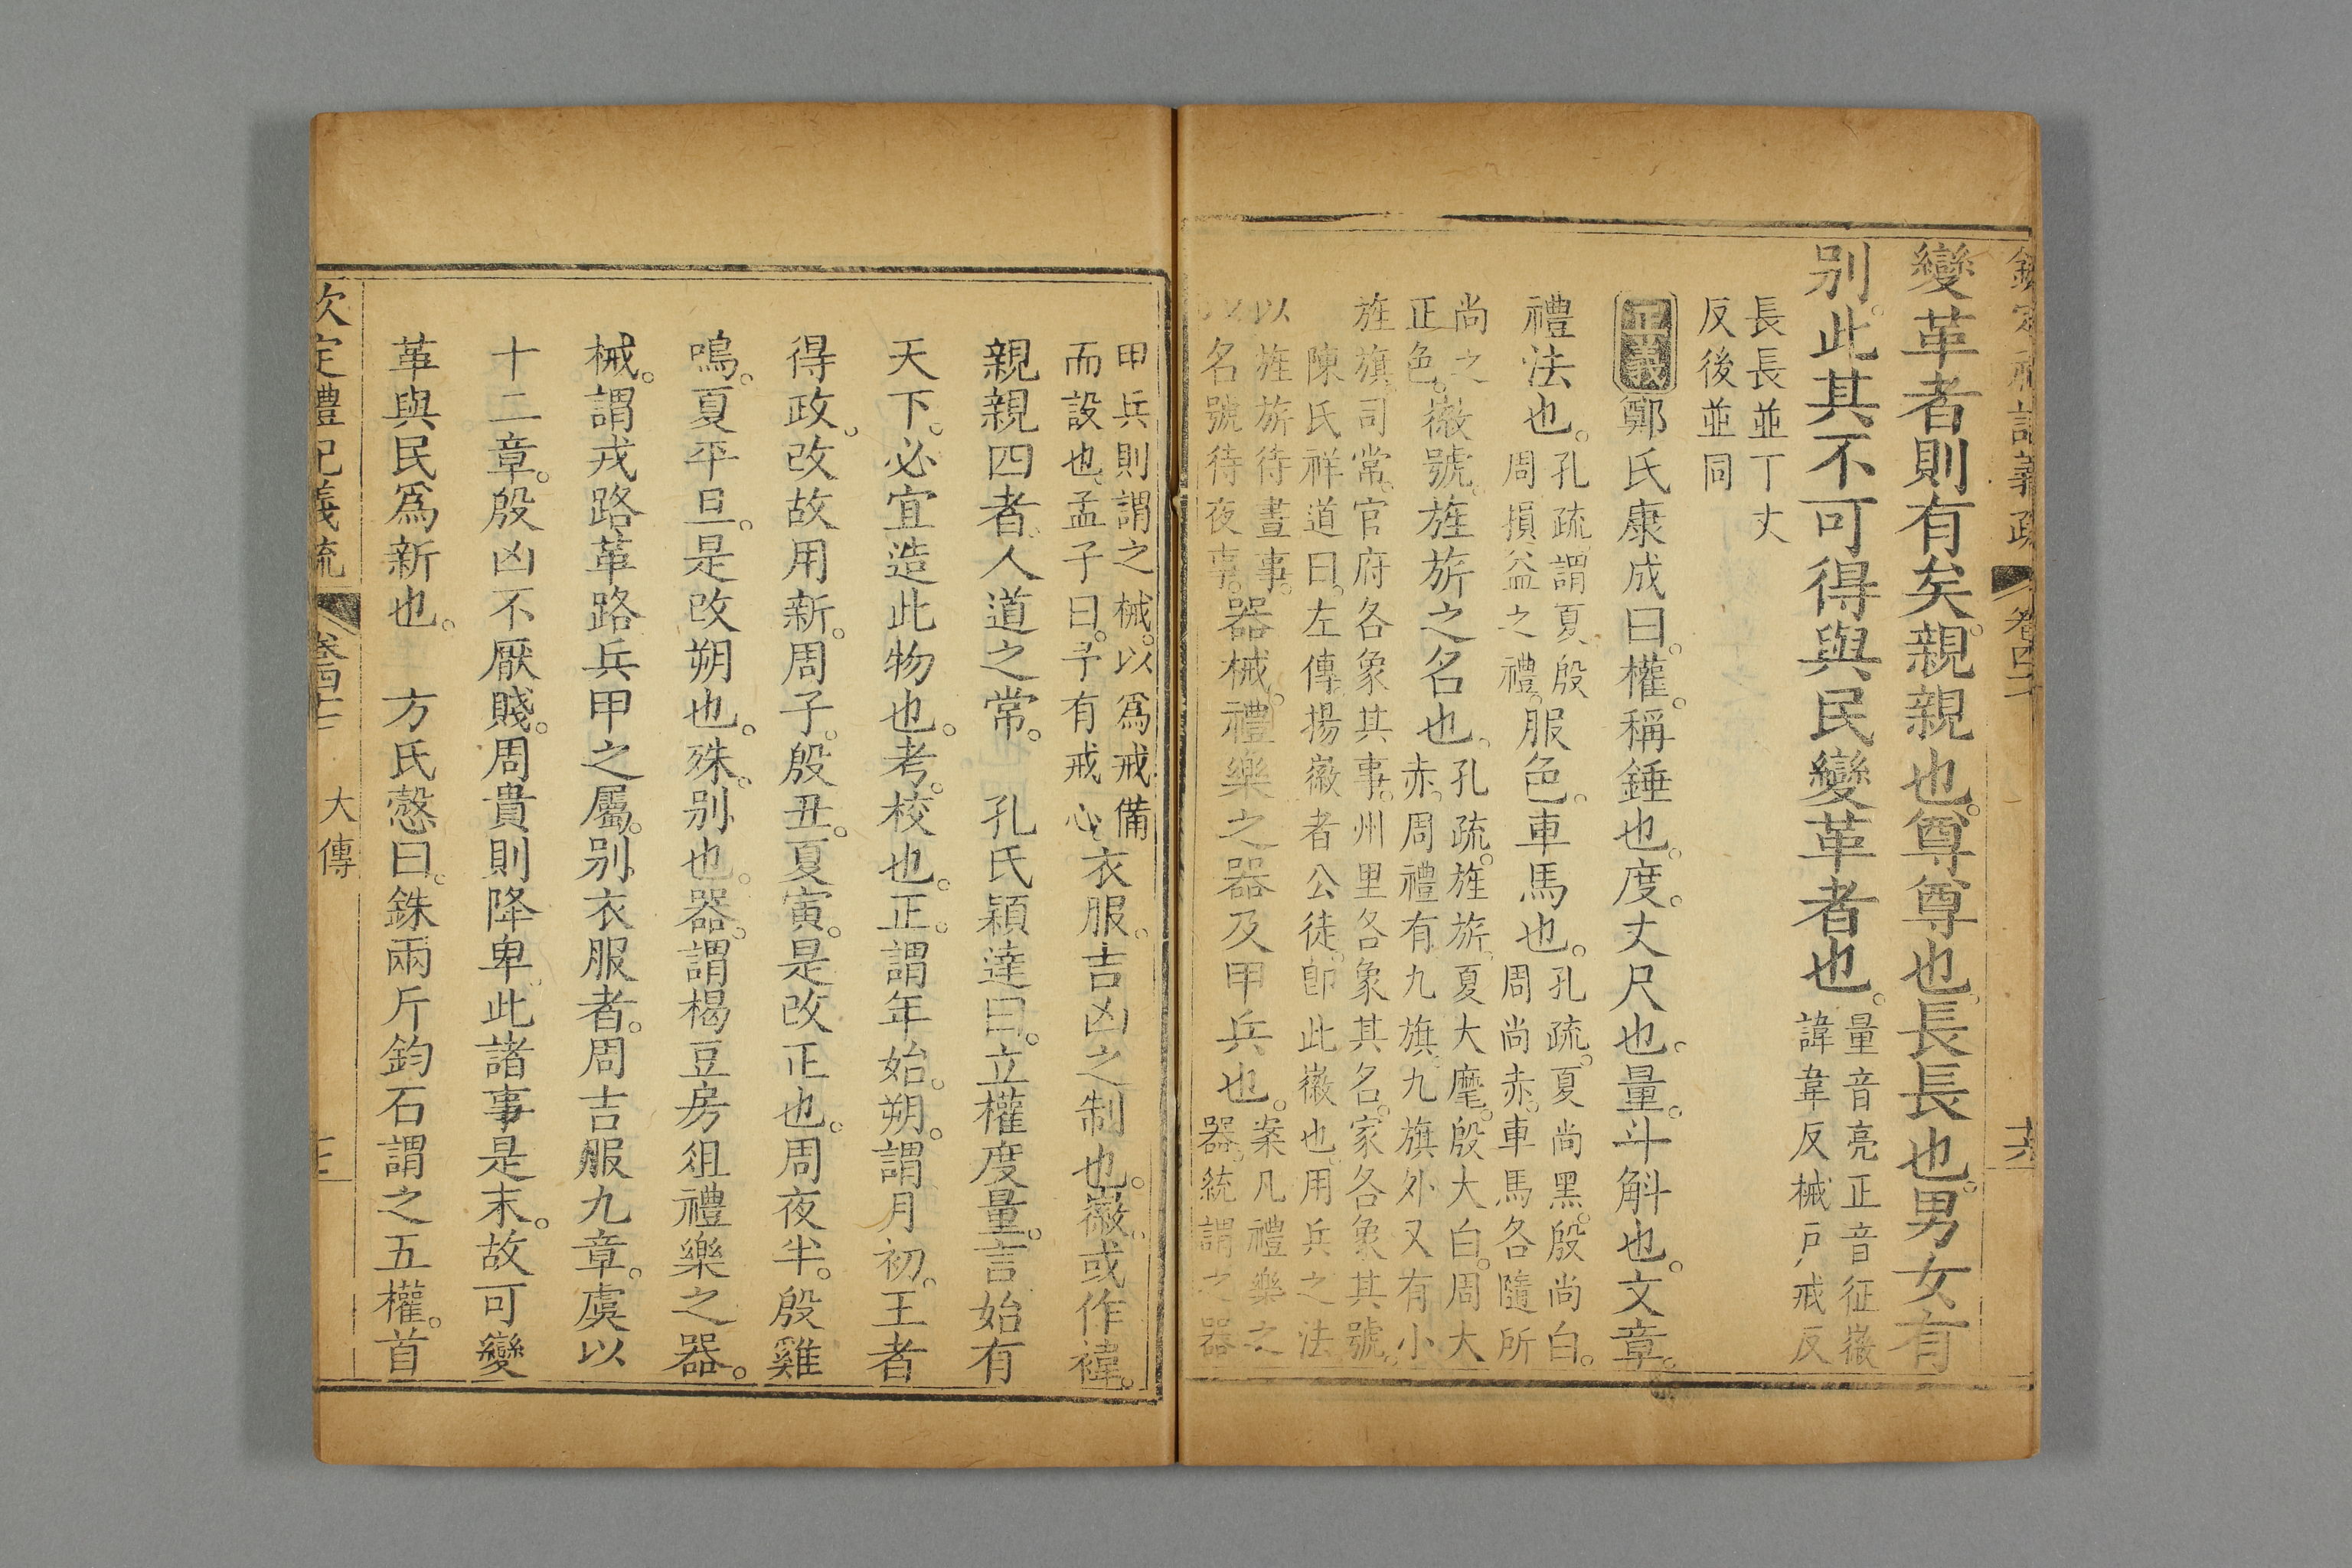 欽定禮記義疏 卷四十二 十六
變革者則有矣。親親也。尊尊也。長長也。男女有
别。此其不可得與民變革者也。
量音亮正音征徽
諱韋反械戸戒反
長長並丁丈
反後並同
正義 鄭氏康成曰。權。稱錘也。度。丈尺也。量。斗斛也。文章。
禮法也。
孔疏。謂夏殷
周損益之禮。
服色。車馬也。
孔疏。夏尚黑。殷尚白。
周尚赤。車馬各隨所
尚之
正色。
徽號。旌旂之名也。
孔疏。旌旂。夏大麾。殷大白。周大
赤。周禮有九旗。九旗外又有小
旌旗。司常。官府各象其事。州里各象其名。家各象其號。
陳氏祥道曰。左傳。揚徽者公徒。卽此徽也。用兵之法
以旌旂待晝事。
以名號待夜事。
器械。禮樂之器及甲兵也。
案凡禮樂之
器。統謂之器
甲兵則謂之械。以爲戒備
而設也。孟子曰。予有戒心。
衣服。吉凶之制也。徽。或作褘。
親親四者。人道之常。 孔氏穎達曰。立權度量。言始有
天下。必宜造此物也。考。校也。正。謂年始。朔。謂月初。王者
得政。改故用新。周子。殷丑。夏寅。是改正也。周夜半。殷雞
鳴。夏平旦。是改朔也。殊。别也。器。謂楬豆房俎禮樂之器。
械。謂戎路革路兵甲之屬。别衣服者。周吉服九章。虞以
十二章。殷凶不厭賤。周貴則降卑。此諸事是末。故可變
革與民爲新也。 方氏慤曰。銖兩斤鈞石謂之五權。首
欽定禮記義疏 卷四十二 大傳